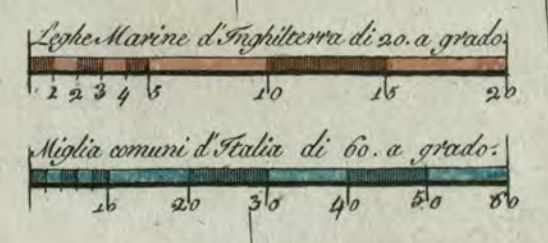 Leghe Marine d'Inghilterra di 20. a grado.
1 2 3 4 5 10 15 20
Miglia comuni d'Italia di 60. a grado.
10 20 30 40 50 60